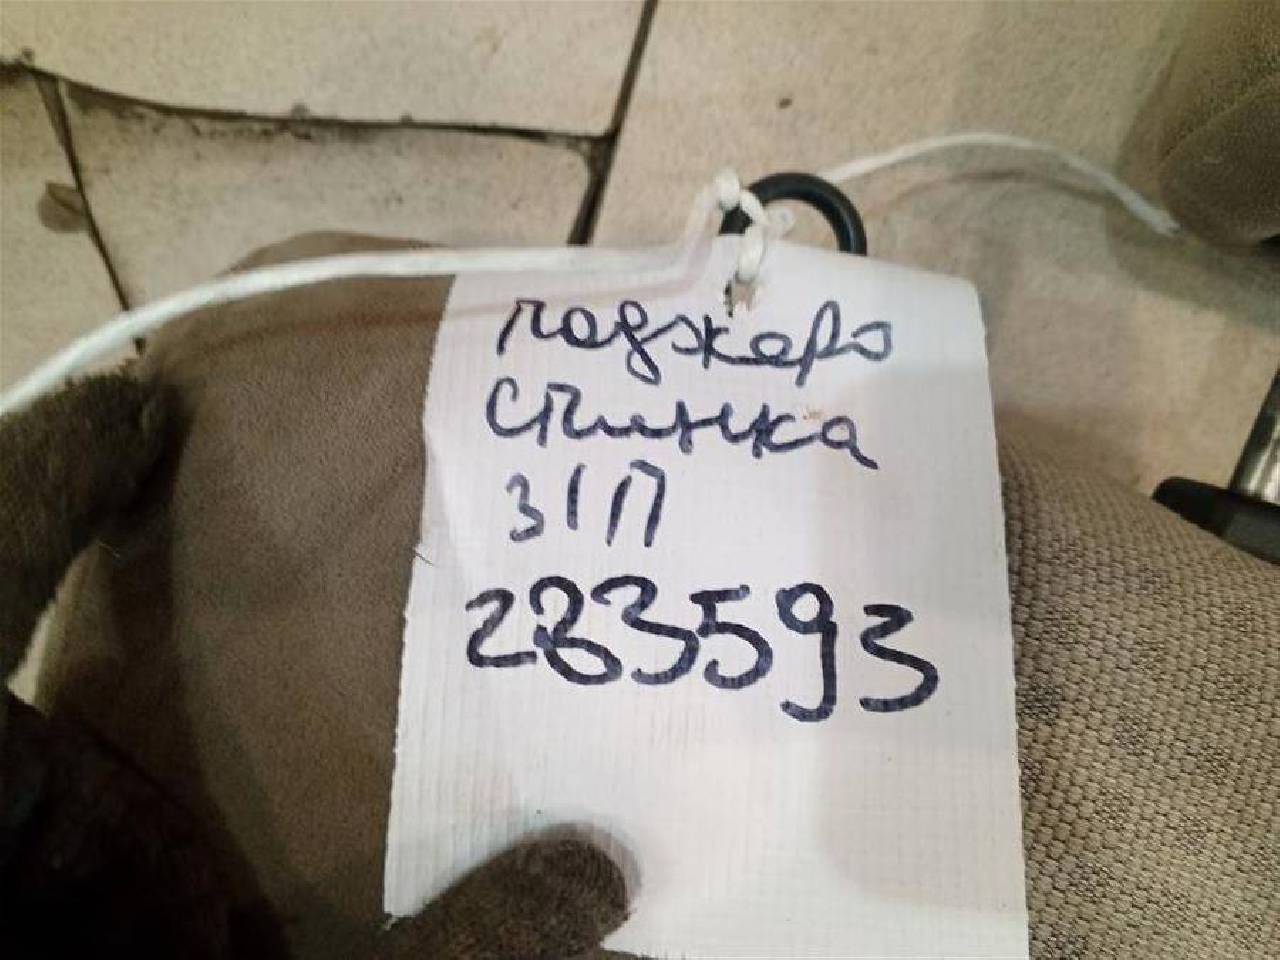 паджеро
спинка
з/п
283593